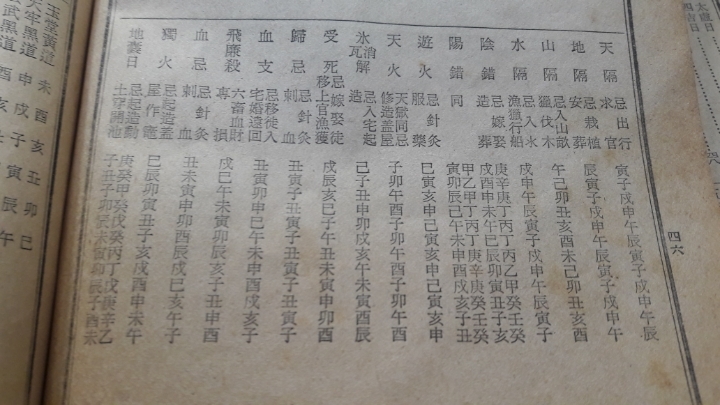 四六
天隔 忌出行求官 寅子戌申午辰寅子戌申午辰
地隔 忌栽植安葬 辰寅子戌申午辰寅子戌申午
山隔 忌入山獵伐木 己卯丑亥酉未己卯丑亥酉
水隔 忌入水漁獵行船 戌申午辰寅子戌申午辰寅子
陰錯 忌嫁娶造葬 庚辛庚丁丙丁丙乙甲癸壬癸 戌酉申未午巳辰卯寅丑子亥
陽錯 同 甲乙甲丁丙丁庚辛庚癸壬癸 寅卯辰巳午未申酉戌亥子丑
遊火 忌針灸服藥 巳寅亥申己寅亥申己寅亥申
天火 天獄同忌修造蓋屋 子卯午酉子卯午酉子卯午酉
氷消瓦解 忌入宅起造 己子丑申卯戌亥午未寅酉辰
受死 忌嫁娶徙移上官漁獵 戌辰亥巳子午丑未寅申卯酉
歸忌 忌針灸刺血 丑寅子丑寅子丑寅子丑寅子
血支 忌移徙入宅婚遠回 丑寅卯辰巳午未申酉戌亥子
血忌 忌針灸刺血 丑未寅申卯酉辰戌巳亥午子
飛廉殺 六畜血財專損 戌巳午未寅卯辰亥子丑申酉
獨火 忌起造蓋屋作竈 巳辰卯寅丑子亥戌酉申未午
地囊日 忌起造動土穿開池 庚癸甲癸戊癸丙丁戊庚辛乙 子丑子卯辰未寅卯辰子酉未
玉堂黃道
天牢黑道